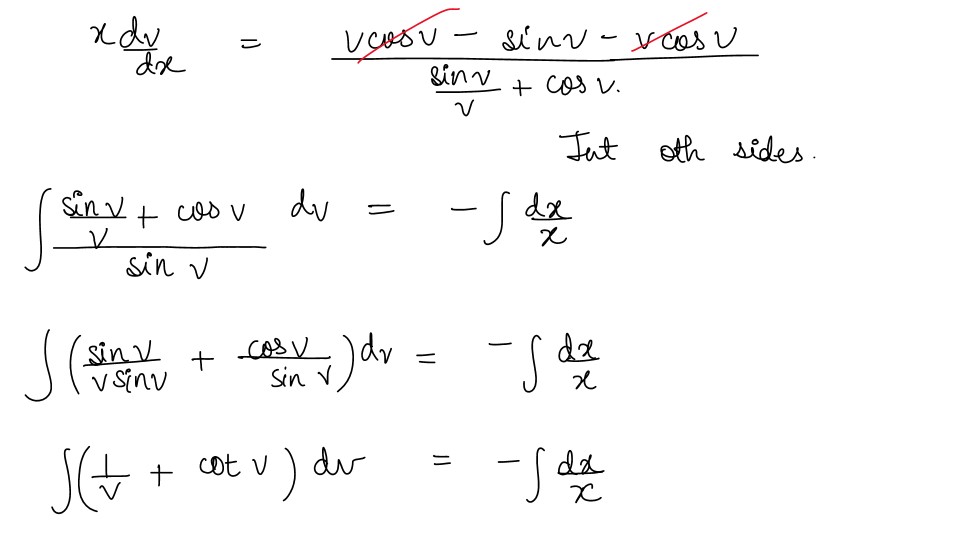 x dv/dx = (v cos v − sin v − v cos v) / (sin v / v + cos v.)
Int oth sides.
∫ (sin v / v + cos v) / sin v dv = − ∫ dx/x
∫ (sin v / v sin v + cos v / sin v) dv = − ∫ dx/x
∫ (1/v + cot v) dv = − ∫ dx/x